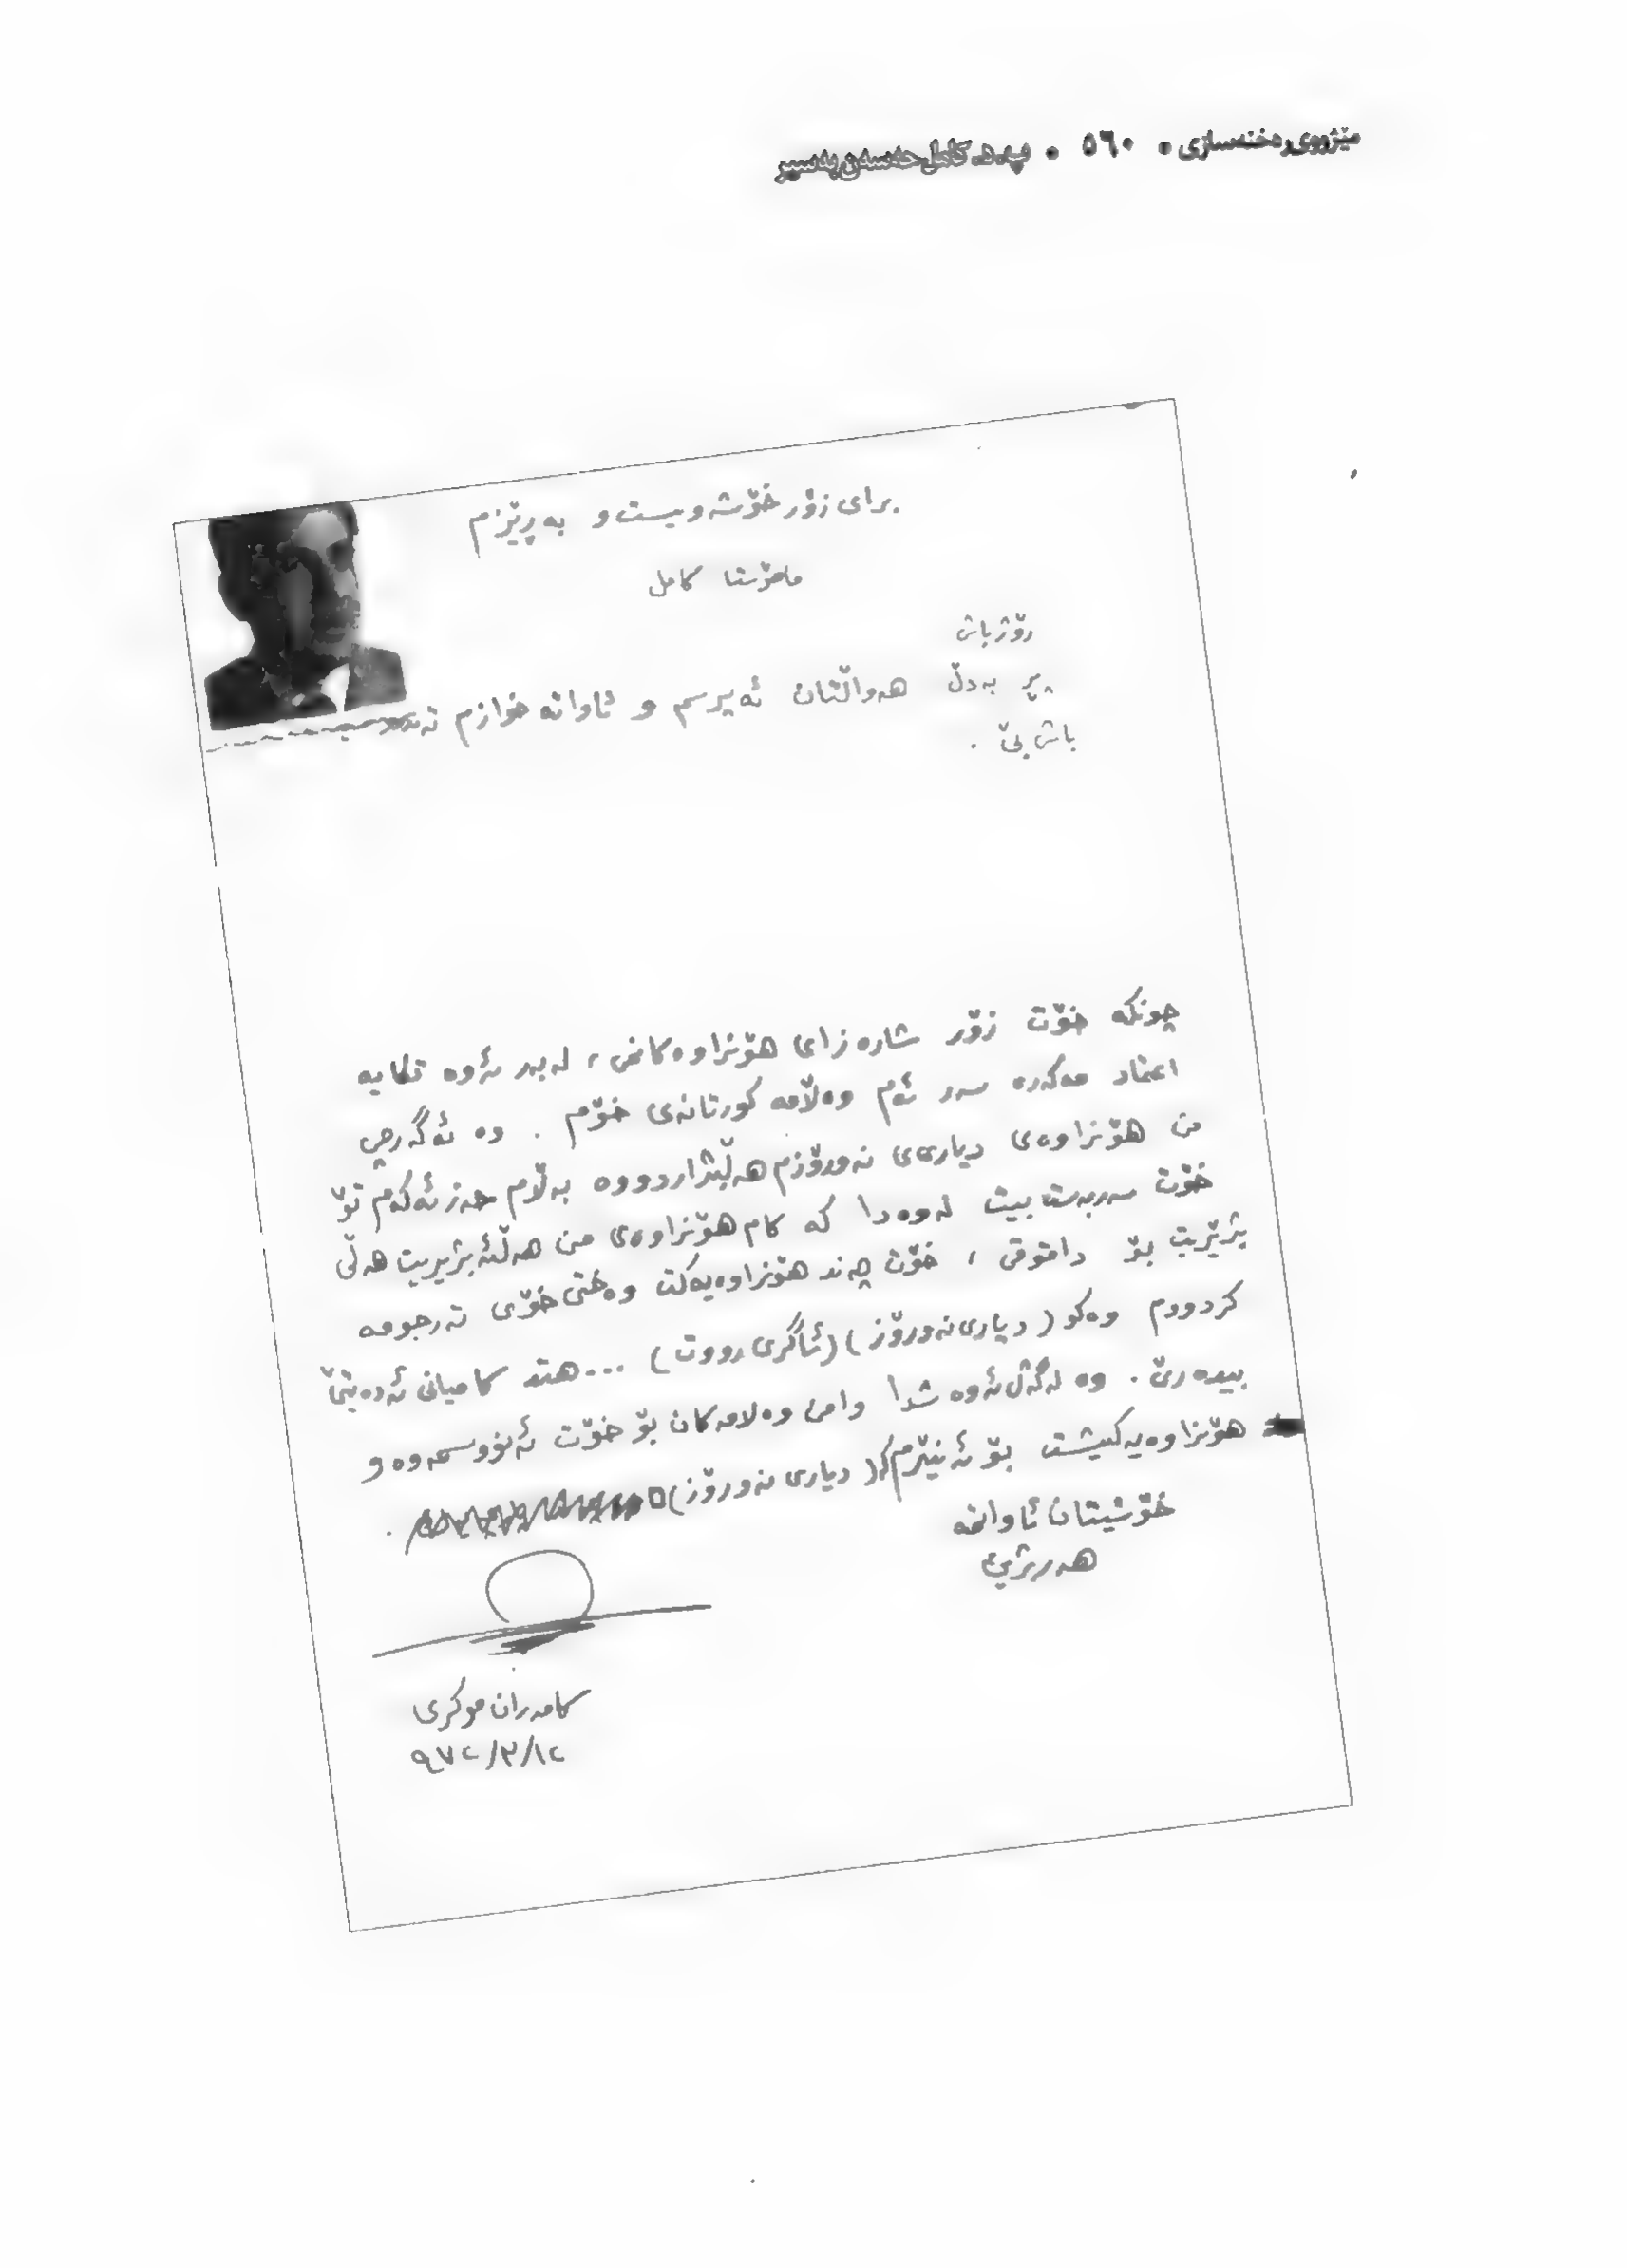 مێژووی ڕەخنەسازی • ٥٦٠ • پ.د. کامل حەسەن بەسیر
برای زۆر خۆشەویست و بەڕێزم
مامۆستا کامل
رۆژباش
پڕ بەدڵ هەواڵتان ئەپرسم و ئاواتە خوازم
باش بێ .
چونکە خۆت زۆر شارەزای هۆنراوەکانمی ، لەبەر ئەوە تکایە
اعتماد مەکەرە سەر ئەم وەڵامە کورتانەی خۆم . وە ئەگەرچی
من هۆنراوەی دیاری‌ی نەورۆزم هەڵبژاردووە بەڵام حەز ئەکەم تۆ
خۆت سەربەست بیت لەوەدا کە کام هۆنراوەی من هەڵئەبژیریت هەڵی
بژێریت بۆ دامتوقی ، خۆت چەند هۆنراوەیەکت وەختی خۆی تەرجومە
کردووم وەکو (دیاری نەورۆز) (ئاگری رووت) ... هتد کامیانی ئەدەیتێ
بیدەرێ . وە لەگەڵ ئەوەشدا وامن وەلامەکان بۆ خۆت ئەنووسمەوە و
هۆنراوەیەکیشت بۆ ئەنێرم کە (دیاری نەورۆز)
خۆشیتان ئاواتمە
هەر بژین
کامەران موکری
٩٧٢/٣/١٢